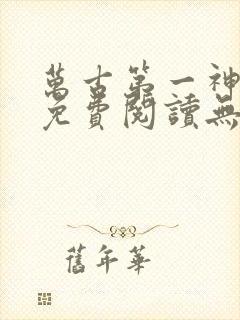 萬古第一神
免費閱讀無
舊年華